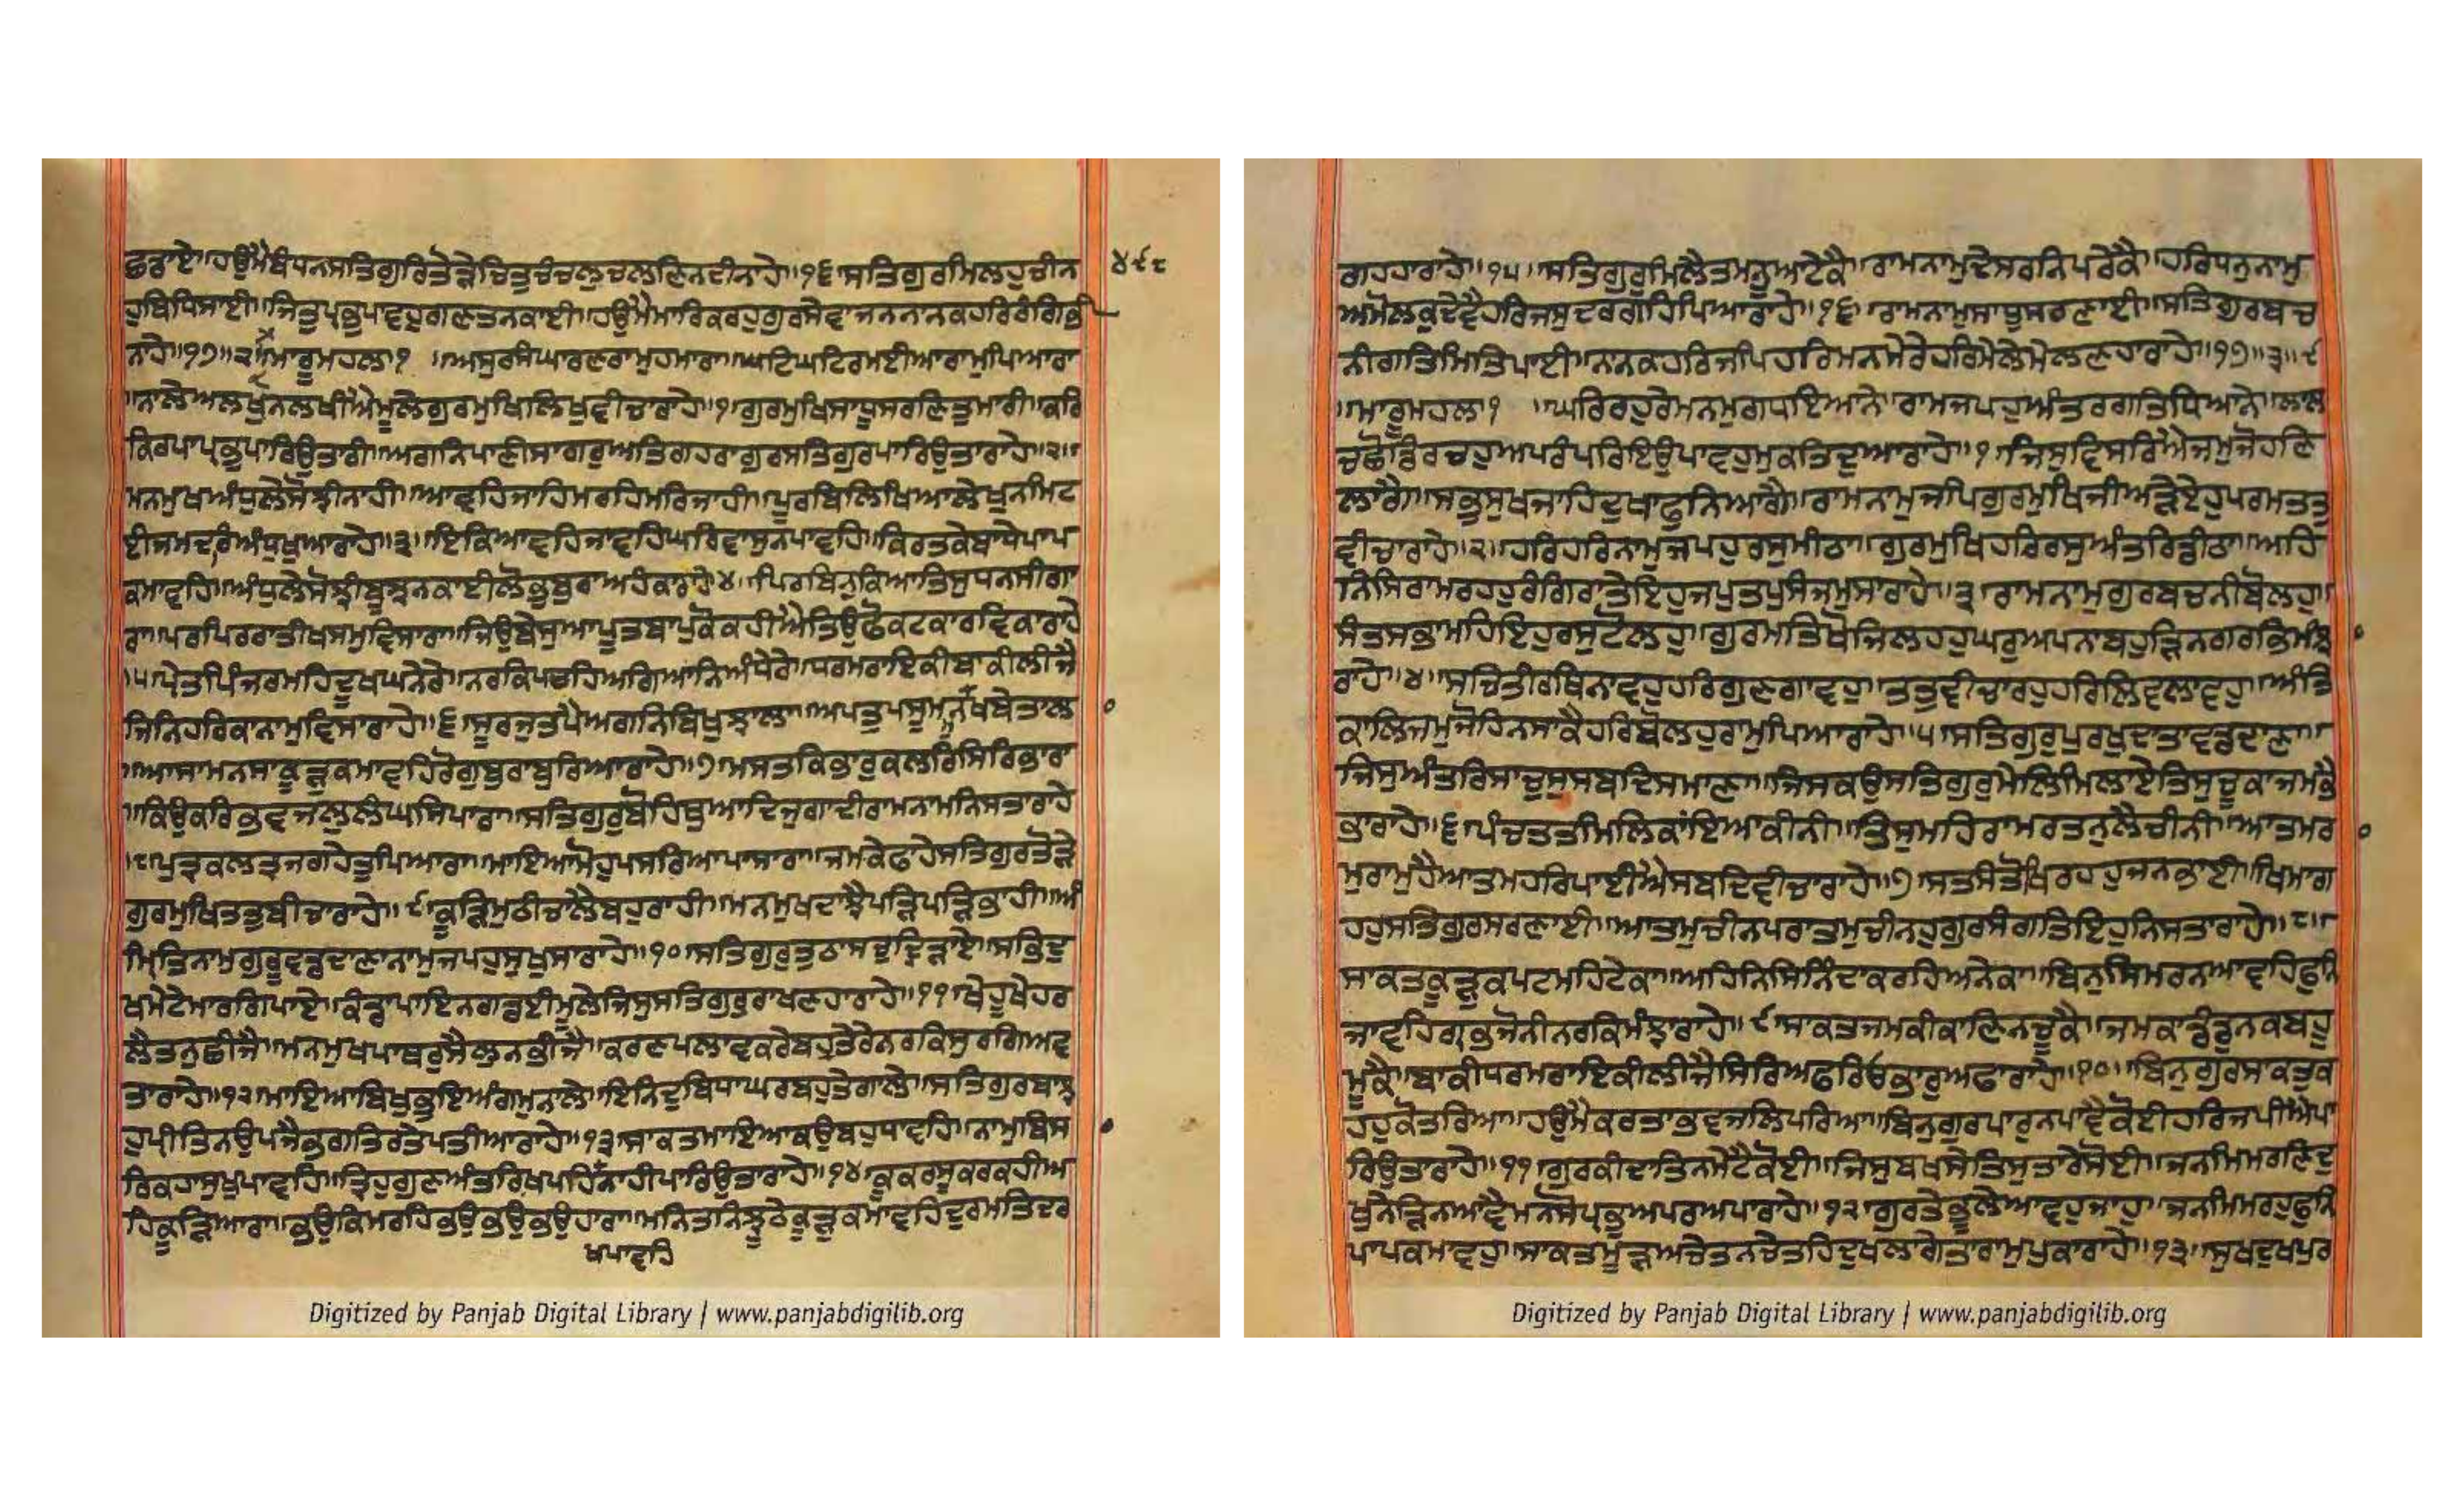 ਛਡਾਏ॥ਹਉਮੈਬੰਧਨਸਤਿਗੁਰਿਤੋੜੇਚਿਤੁਚੰਚਲੁਚਲਣਿਨਦੀਨਾਹੇ॥੧੬॥ਸਤਿਗੁਰਮਿਲਹੁਚੀਨ
੪੯੮
ਹੁਬਿਧਿਸਾਈ॥ਜਿਤੁਪ੍ਰਭੁਪਾਵਹੁਗਣਤਨਕਾਈ॥ਹਉਮੈਮਾਰਿਕਰਹੁਗੁਰਸੇਵਾਜਨਨਾਨਕਹਰਿਰੰਗਿਭੀ
ਨਾਹੇ॥੧੭॥੨॥ਮਾਰੂਮਹਲਾ੧ ॥ਅਸੁਰਸੰਘਾਰਣਰਾਮੁਹਮਾਰਾ॥ਘਟਿਘਟਿਰਮਈਆਰਾਮੁਪਿਆਰਾ
॥ਨਾਲੇਅਲਖੁਨਲਖੀਐਮੂਲੇਗੁਰਮੁਖਿਲਿਖੁਵੀਚਾਰਾਹੇ॥੧॥ਗੁਰਮੁਖਿਸਾਧੂਸਰਣਿਤੁਮਾਰੀ॥ਕਰਿ
ਕਿਰਪਾਪ੍ਰਭੁਪਾਰਿਉਤਾਰੀ॥ਅਗਨਿਪਾਣੀਸਾਗਰੁਅਤਿਗਹਰਾਗੁਰਸਤਿਗੁਰਪਾਰਿਉਤਾਰਾਹੇ॥੨॥
ਮਨਮੁਖਅੰਧੁਲੇਸੋਝੀਨਾਹੀ॥ਆਵਹਿਜਾਹਿਮਰਹਿਮਰਿਜਾਹੀ॥ਪੂਰਬਿਲਿਖਿਆਲੇਖੁਨਮਿਟ
ਈਜਮਦਰਿਅੰਧੁਖੁਆਰਾਹੇ॥੩॥ਇਕਿਆਵਹਿਜਾਵਹਿਘਰਿਵਾਸੁਨਪਾਵਹਿ॥ਕਿਰਤਕੇਬਾਧੇਪਾਪ
ਕਮਾਵਹਿ॥ਅੰਧੁਲੇਸੋਝੀਬੂਝਨਕਾਈਲੋਭੁਬੁਰਾਅਹੰਕਾਰਾਹੇ॥੪॥ਪਿਰਬਿਨੁਕਿਆਤਿਸੁਧਨਸੀਗਾ
ਰਾ॥ਪਰਪਿਰਰਾਤੀਖਸਮੁਵਿਸਾਰਾ॥ਜਿਉਬੇਸੁਆਪੂਤਬਾਪੁਕੋਕਹੀਐਤਿਉਫੋਕਟਕਾਰਵਿਕਾਰਾਹੇ
॥੫॥ਪ੍ਰੇਤਪਿੰਜਰਮਹਿਦੂਖਘਨੇਰੇ॥ਨਰਕਿਪਚਹਿਅਗਿਆਨਿਅੰਧੇਰੇ॥ਧਰਮਰਾਇਕੀਬਾਕੀਲੀਜੈ
ਜਿਨਿਹਰਿਕਾਨਾਮੁਵਿਸਾਰਾਹੇ॥੬॥ਸੂਰਜੁਤਪੈਅਗਨਿਬਿਖੁਝਾਲਾ॥ਅਪਤੁਪਸੂਮਨਮੁਖਬੇਤਾਲਾ
॥ਆਸਾਮਨਸਾਕੂੜੁਕਮਾਵਹਿਰੋਗੁਬੁਰਾਬੁਰਿਆਰਾਹੇ॥੭॥ਮਸਤਕਿਭਾਰੁਕਲਰਸਿਰਿਭਾਰਾ
॥ਕਿਉਕਰਿਭਵਜਲੁਲੰਘਸਿਪਾਰਾ॥ਸਤਿਗੁਰੁਬੋਹਿਥੁਆਦਿਜੁਗਾਦੀਰਾਮਨਾਮਨਿਸਤਾਰਾਹੇ
॥੮॥ਪੁਤ੍ਰਕਲਤ੍ਰਜਗਹੇਤੁਪਿਆਰਾ॥ਮਾਇਆਮੋਹੁਪਸਰਿਆਪਾਸਾਰਾ॥ਜਮਕੇਫਾਹੇਸਤਿਗੁਰਤੋੜੇ
ਗੁਰਮੁਖਿਤਤੁਬੀਚਾਰਾਹੇ॥੯॥ਕੂੜਿਮੁਠੀਚਾਲੈਬਹੁਰਾਹੀ॥ਮਨਮੁਖਦਾਝੈਪੜਿਪੜਿਭਾਹੀ॥ਅੰ
ਮ੍ਰਿਤਨਾਮੁਗੁਰੂਵਡਦਾਣਾਨਾਮੁਜਪਹੁਸੁਖੁਸਾਰਾਹੇ॥੧੦॥ਸਤਿਗੁਰੁਤੁਠਾਸਚੁਦ੍ਰਿੜਾਏ॥ਸਭਿਦੁ
ਖਮੇਟੇਮਾਰਗਿਪਾਏ॥ਕੰਡਾਪਾਇਨਗਡਈਮੂਲੇਜਿਸੁਸਤਿਗੁਰੁਰਾਖਣਹਾਰਾਹੇ॥੧੧॥ਖੇਹੂਖੇਹਰ
ਲੈਤਨੁਛੀਜੈ॥ਮਨਮੁਖਪਾਥਰੁਸੈਲੁਨਭੀਜੈ॥ਕਰਣਪਲਾਵਕਰੇਬਹੁਤੇਰੇਨਰਕਿਸੁਰਗਿਅਵ
ਤਾਰਾਹੇ॥੧੨॥ਮਾਇਆਬਿਖੁਭੁਇਅੰਗਮੁਨਾਲੇ॥ਇਨਿਦੁਬਿਧਾਘਰਬਹੁਤੇਗਾਲੇ॥ਸਤਿਗੁਰਬਾਝ
ਹੁਪ੍ਰੀਤਿਨਉਪਜੈਭਗਤਿਰਤੇਪਤੀਆਰਾਹੇ॥੧੩॥ਸਾਕਤਮਾਇਆਕਉਬਹੁਧਾਵਹਿ॥ਨਾਮੁਵਿਸਾ
ਰਿਕਹਾਸੁਖੁਪਾਵਹਿ॥ਤ੍ਰਿਹੁਗੁਣਅੰਤਰਿਖਪਹਿਨਾਹੀਪਾਰਿਉਤਾਰਾਹੇ॥੧੪॥ਕੂਕਰਸੂਕਰਕਹੀਅ
ਹਿਕੂੜਿਆਰਾ॥ਭਉਕਿਮਰਹਿਭਉਭਉਭਉਹਾਰਾ॥ਮਨਿਤਨਿਝੂਠੇਕੂੜੁਕਮਾਵਹਿਦੁਰਮਤਿਦਰ
ਖਪਾਵਹਿ
ਗਹਹਾਰਾਹੇ॥੧੫॥ਸਤਿਗੁਰੁਮਿਲੈਤਮਨੂਆਟੇਕੈ॥ਰਾਮਨਾਮੁਦੇਸਰਨਿਪਰੇਕੈ॥ਹਰਿਧਨੁਨਾਮੁ
ਅਮੋਲਕੁਦੇਵੈਹਰਿਜਸੁਦਰਗਹਿਪਿਆਰਾਹੇ॥੧੬॥ਰਾਮਨਾਮੁਸਾਧੂਸਰਣਾਈ॥ਸਤਿਗੁਰਬਚ
ਨੀਗਤਿਮਿਤਿਪਾਈ॥ਨਾਨਕਹਰਿਜਪਿਹਰਿਮਨਮੇਰੇਹਰਿਮੇਲੇਮੇਲਣਹਾਰਾਹੇ॥੧੭॥੩॥੯
॥ਮਾਰੂਮਹਲਾ੧ ॥ਘਰਿਰਹੁਰੇਮਨਮੁਗਧਇਆਨੇ॥ਰਾਮਜਪਹੁਅੰਤਰਗਤਿਧਿਆਨੇ॥ਲਾਲ
ਚਛੋਡਿਰਚਹੁਅਪਰੰਪਰਿਇਉਪਾਵਹੁਮੁਕਤਿਦੁਆਰਾਹੇ॥੧॥ਜਿਸੁਵਿਸਰਿਐਜਮੁਜੋਹਣਿ
ਲਾਗੈ॥ਸਭੁਸੁਖਜਾਹਿਦੁਖਾਫੁਨਿਆਗੈ॥ਰਾਮਨਾਮੁਜਪਿਗੁਰਮੁਖਿਜੀਅੜੇਏਹੁਪਰਮਤਤੁ
ਵੀਚਾਰਾਹੇ॥੨॥ਹਰਿਹਰਿਨਾਮੁਜਪਹੁਰਸੁਮੀਠਾ॥ਗੁਰਮੁਖਿਹਰਿਰਸੁਅੰਤਰਿਡੀਠਾ॥ਅਹਿ
ਨਿਸਿਰਾਮਰਹਹੁਰੰਗਿਰਾਤੇਇਹੁਜਪੁਤਪੁਸੰਜਮੁਸਾਰਾਹੇ॥੩॥ਰਾਮਨਾਮੁਗੁਰਬਚਨੀਬੋਲਹੁ॥
ਸੰਤਸਭਾਮਹਿਇਹੁਰਸੁਟੋਲਹੁ॥ਗੁਰਮਤਿਖੋਜਿਲਹਹੁਘਰੁਅਪਨਾਬਹੁੜਿਨਗਰਭਿਮੰਝਾ
ਰਾਹੇ॥੪॥ਸਚਿਤੀਰਥਿਨਾਵਹੁਹਰਿਗੁਣਗਾਵਹੁ॥ਤਤੁਵੀਚਾਰਹੁਹਰਿਲਿਵਲਾਵਹੁ॥ਅੰਤਿ
ਕਾਲਿਜਮੁਜੋਹਿਨਸਾਕੈਹਰਿਬੋਲਹੁਰਾਮੁਪਿਆਰਾਹੇ॥੫॥ਸਤਿਗੁਰੁਪੁਰਖੁਦਾਤਾਵਡਦਾਣਾ॥
ਜਿਸੁਅੰਤਰਿਸਾਚੁਸੁਸਬਦਿਸਮਾਣਾ॥ਜਿਸਕਉਸਤਿਗੁਰੁਮੇਲਿਮਿਲਾਏਤਿਸੁਚੂਕਾਜਮਭੈ
ਭਾਰਾਹੇ॥੬॥ਪੰਚਤਤੁਮਿਲਿਕਾਂਇਆਕੀਨੀ॥ਤਿਸੁਮਹਿਰਾਮਰਤਨੁਲੈਚੀਨੀ॥ਆਤਮਰਾ
ਮੁਰਾਮੁਹੈਆਤਮਹਰਿਪਾਈਐਸਬਦਿਵੀਚਾਰਾਹੇ॥੭॥ਸਤਸੰਤੋਖਿਰਹਹੁਜਨਭਾਈ॥ਖਿਮਾਗ
ਹਹੁਸਤਿਗੁਰਸਰਣਾਈ॥ਆਤਮੁਚੀਨਪਰਾਤਮੁਚੀਨਹੁਗੁਰਸੰਗਤਿਇਹੁਨਿਸਤਾਰਾਹੇ॥੮॥
ਸਾਕਤਕੂੜਕਪਟਮਹਿਟੇਕਾ॥ਅਹਿਨਿਸਿਨਿੰਦਾਕਰਹਿਅਨੇਕਾ॥ਬਿਨੁਸਿਮਰਨਆਵਹਿਫੁਨਿ
ਜਾਵਹਿਗ੍ਰਭਜੋਨੀਨਰਕਿਮੰਝਾਰਾਹੇ॥੯॥ਸਾਕਤਜਮਕੀਕਾਣਿਨਚੂਕੈ॥ਜਮਕਾਡੰਡੁਨਕਬਹੂ
ਮੂਕੈ॥ਬਾਕੀਧਰਮਰਾਇਕੀਲੀਜੈਸਿਰਿਅਫਰਿਓਭਾਰੁਅਫਾਰਾਹੇ॥੧੦॥ਬਿਨੁਗੁਰਸਾਕਤੁਕ
ਹਹੁਕੋਤਰਿਆ॥ਹਉਮੈਕਰਤਾਭਵਜਲਿਪਰਿਆ॥ਬਿਨੁਗੁਰਪਾਰੁਨਪਾਵੈਕੋਈਹਰਿਜਪੀਐਪਾ
ਰਿਉਤਾਰਾਹੇ॥੧੧॥ਗੁਰਕੀਦਾਤਿਨਮੇਟੈਕੋਈ॥ਜਿਸੁਬਖਸੇਤਿਸੁਤਾਰੇਸੋਈ॥ਜਨਮਿਮਰਣਿਦੁ
ਖੁਨੇੜਿਨਆਵੈਮਨਿਸੋਪ੍ਰਭੁਅਪਰਅਪਾਰਾਹੇ॥੧੨॥ਗੁਰਤੇਭੂਲੇਆਵਹੁਜਾਹੁ॥ਜਨਮਿਮਰਹੁਫੁਨਿ
ਪਾਪਕਮਾਵਹੁ॥ਸਾਕਤਮੂੜਅਚੇਤਨਚੇਤਹਿਦੁਖਲਾਗੈਤਾਰਾਮੁਪੁਕਾਰਾਹੇ॥੧੩॥ਸੁਖਦੁਖਪੁਰ
Digitized by Panjab Digital Library | www.panjabdigilib.org
Digitized by Panjab Digital Library | www.panjabdigilib.org